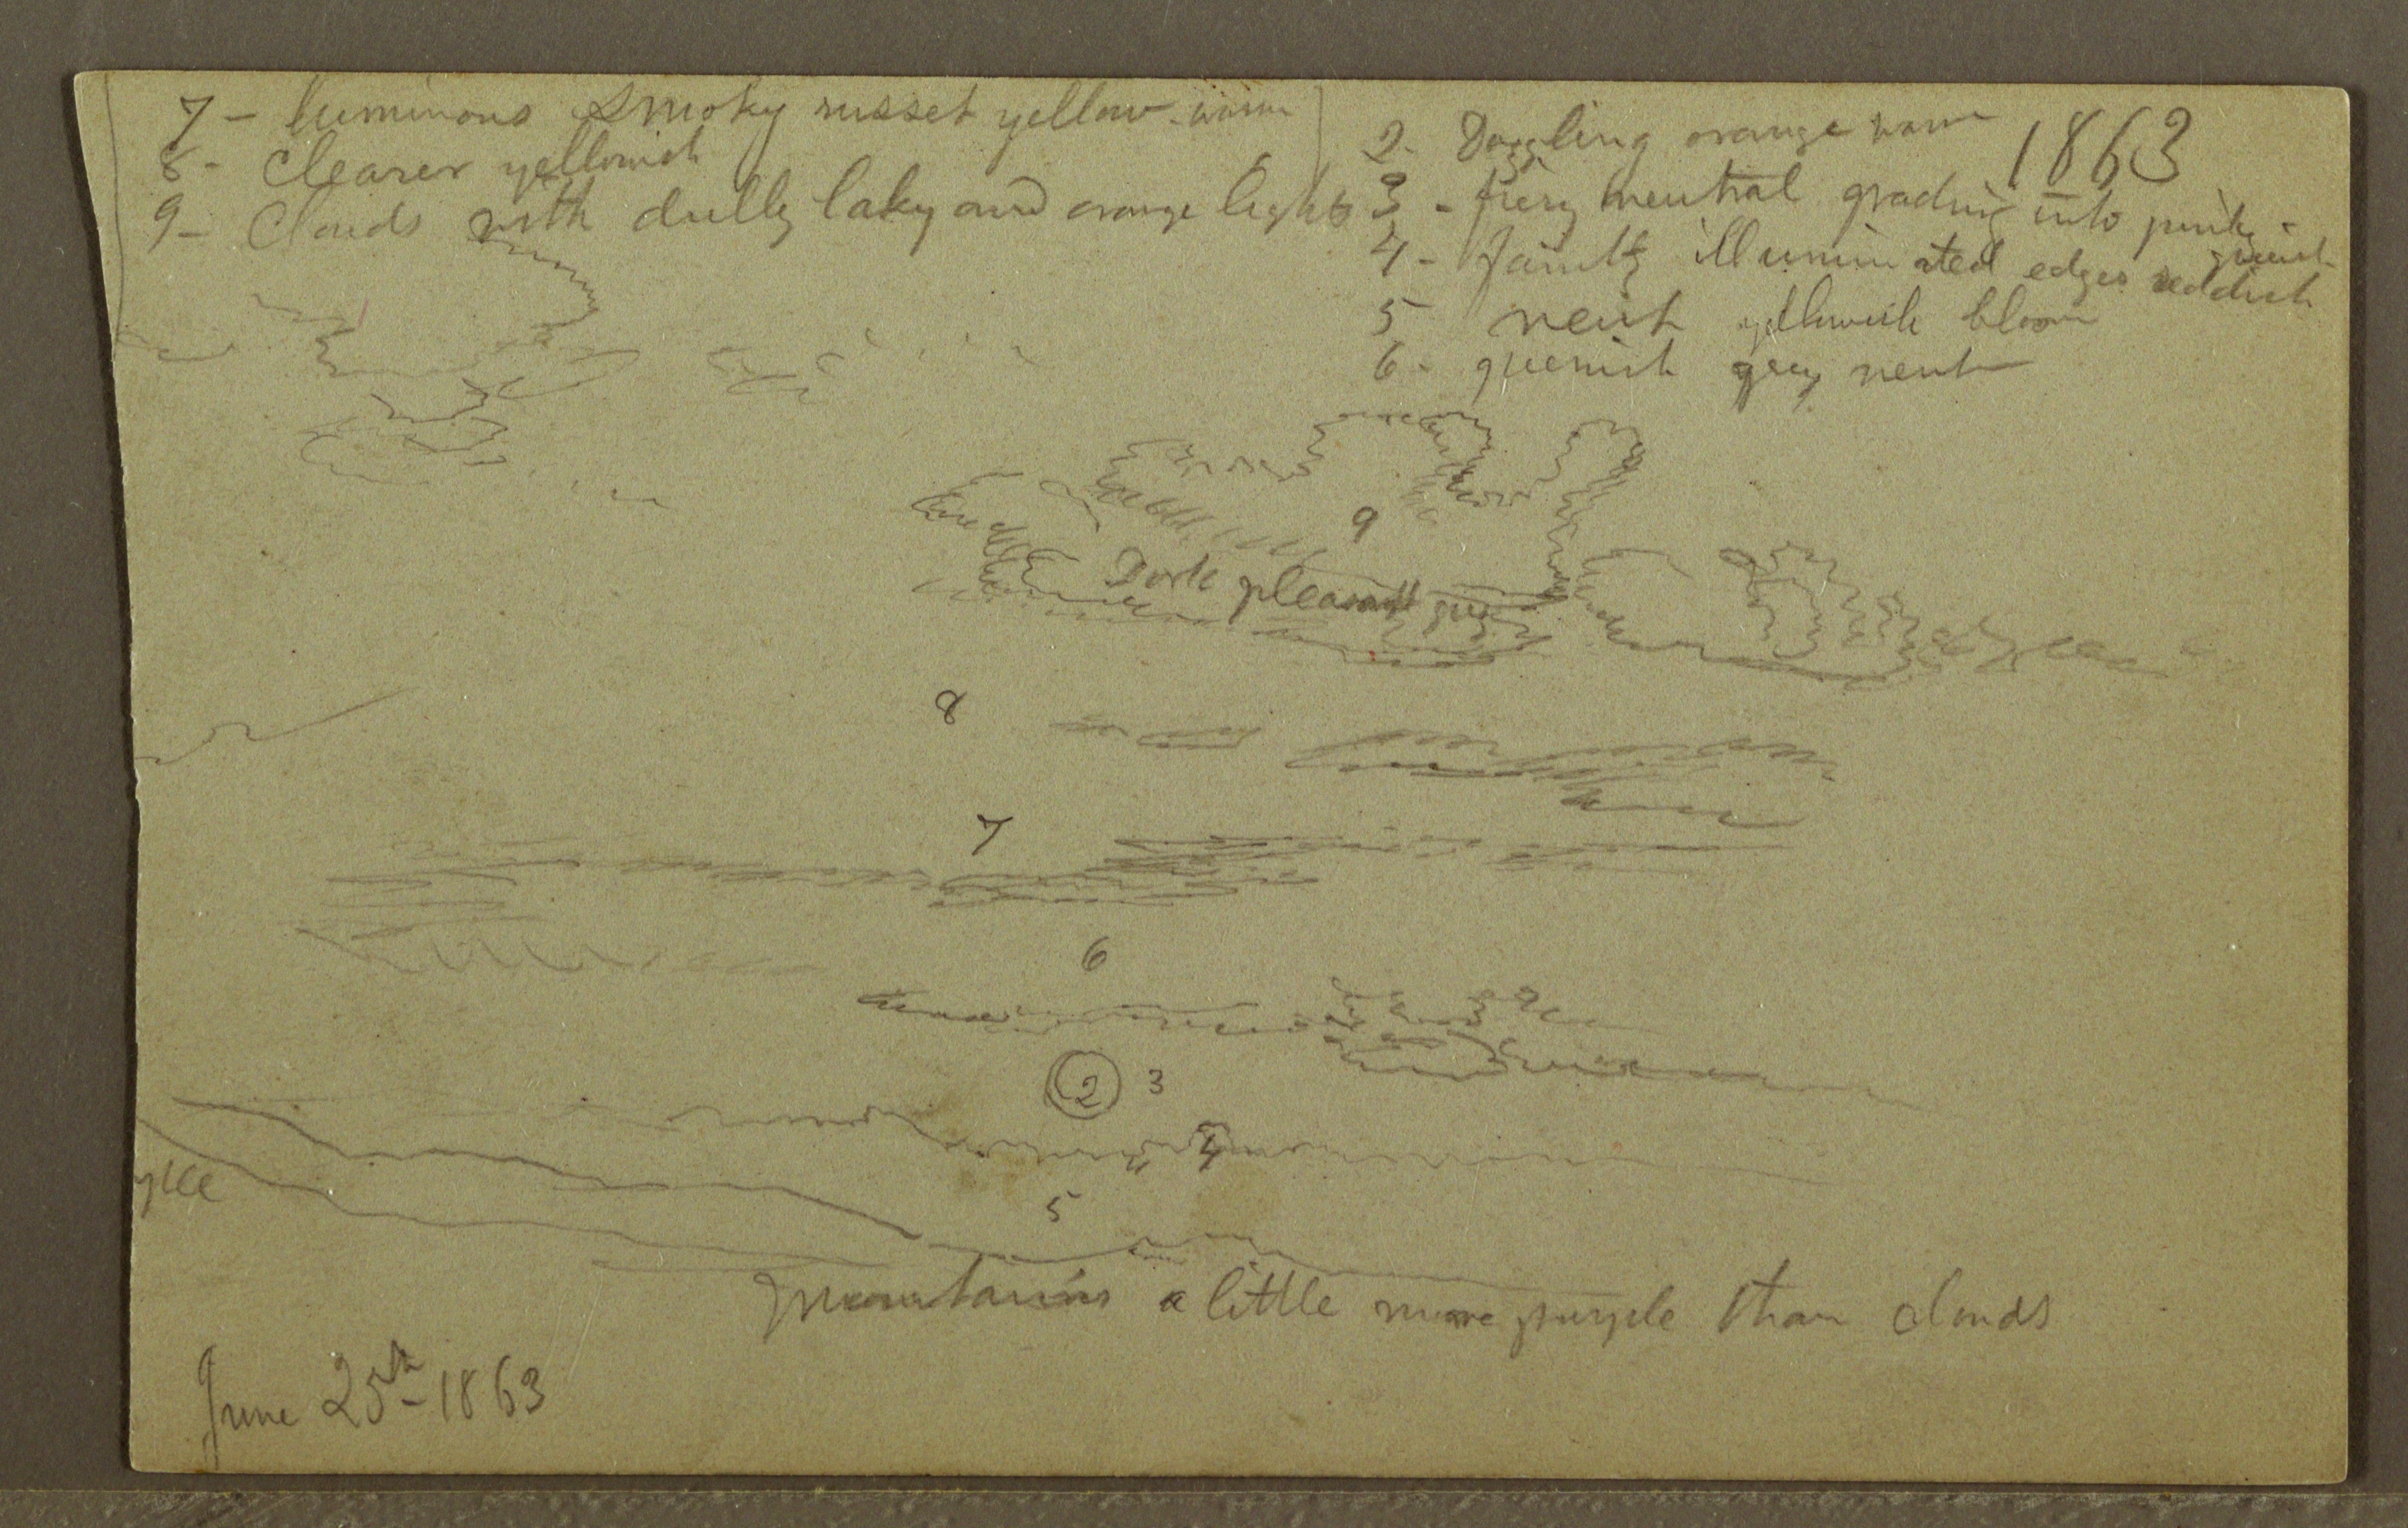 7 - luminous smoky russet yellow - warm
8 - Clearer yellowish
9 - Clouds with dully laky and orange lights
1863
2. Dazzling orange warm
3 - fiery neutral grading into pink -
4 - faintly illuminated edges reddish
5 neut yellowish bloom
6 - greenish grey neut
9
Dark pleasant grey
8
7
6
2 3
4
5
Mountains a little more purple than clouds
June 25th - 1863